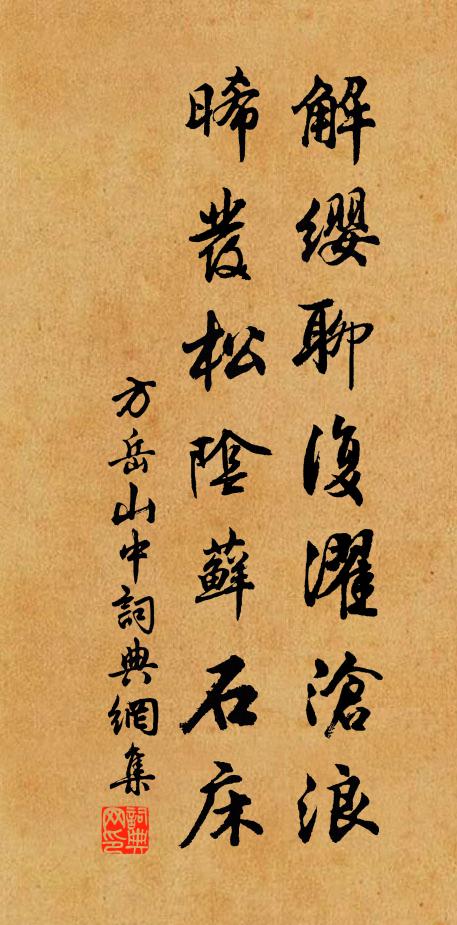 解纓聊復濯滄浪
晞發松陰蘚石床
方岳山中詞典網集
詞典网印